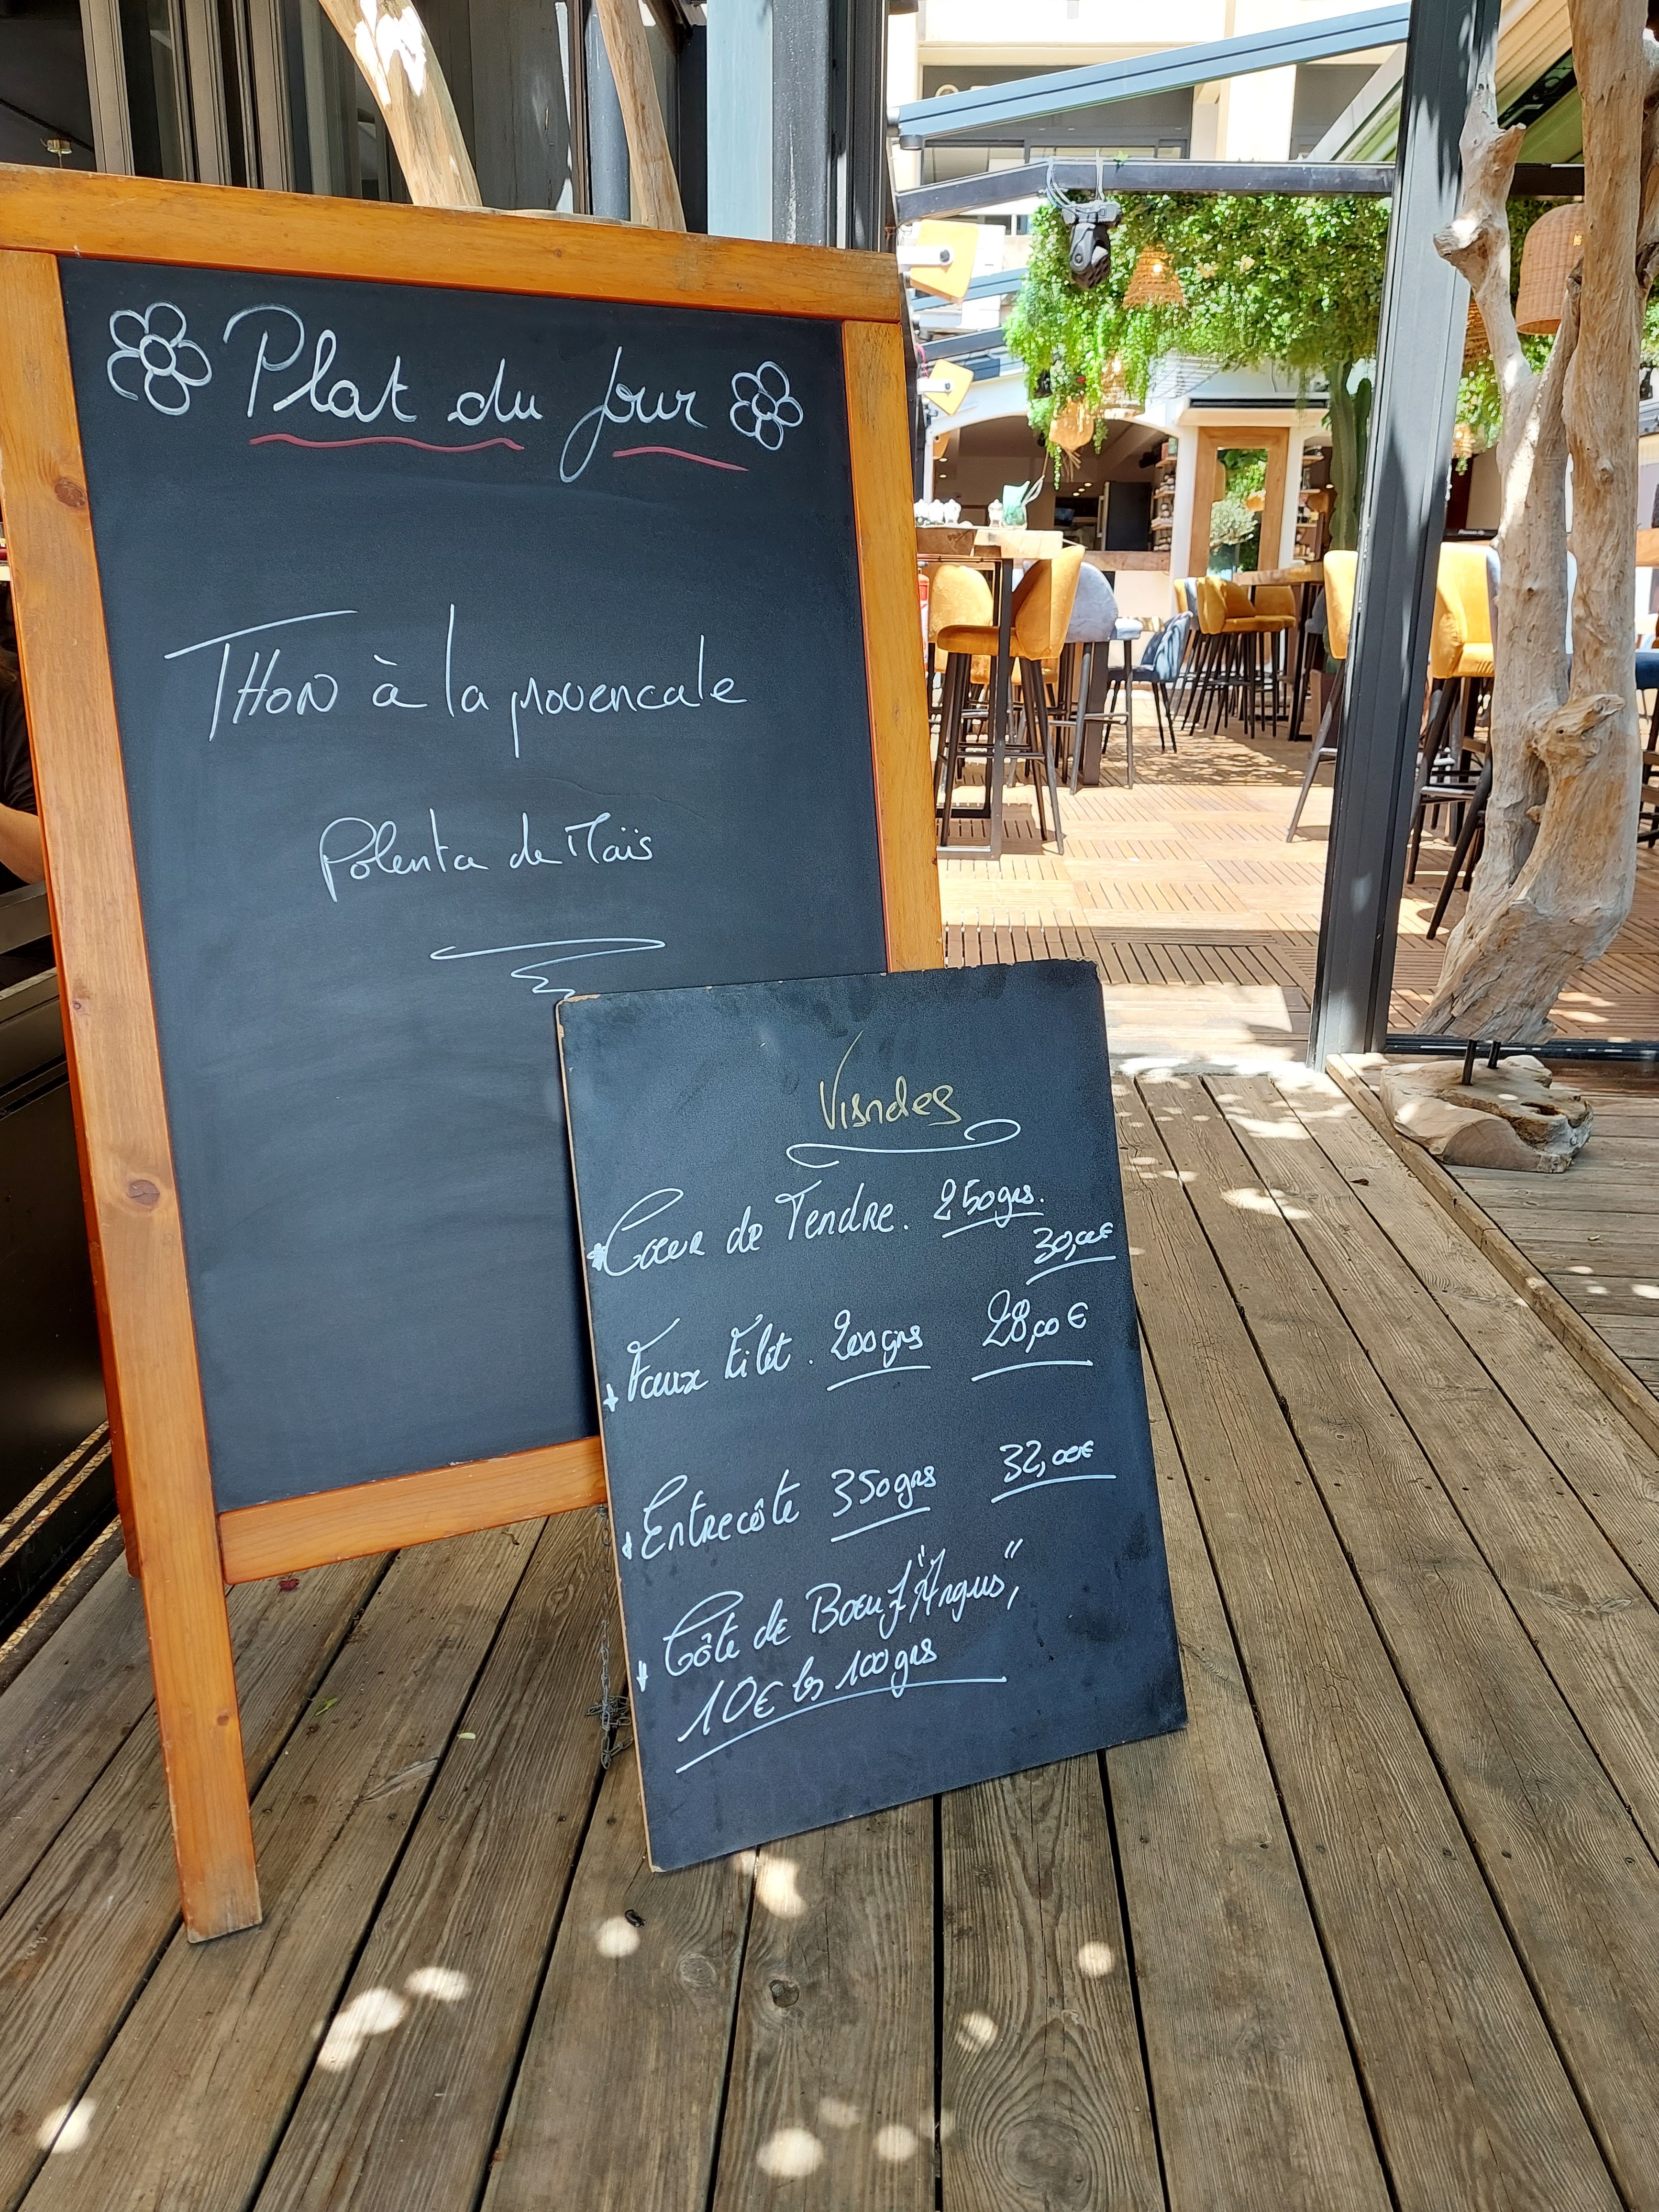 Plat du jour
THON à la provencale
Polenta de Maïs
Viandes
* Coeur de Tendre. 250grs.
30,00€
Faux Filet. 200grs 28,00€
Entrecôte 350grs 32,00€
Côte de Boeuf "Angus",
10€ les 100grs